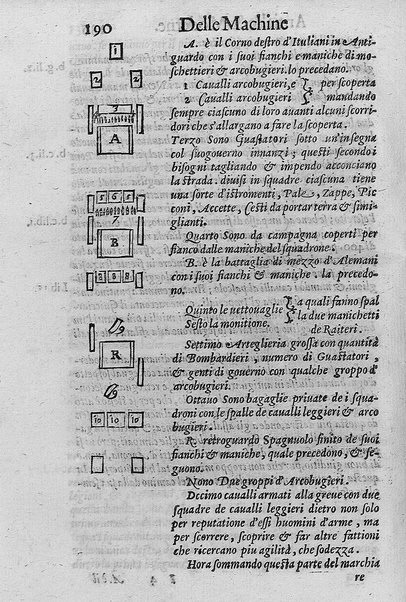 190 Delle Machine
1
2 2
A
5 6 5
7
B
8 8 8
9
R
9
10 10 10
A. è il Corno destro d'Italiani in Anti-
guardo con i suoi fianchi e maniche di mo-
schettieri & arcobugieri. lo precedano.
1 Caualli arcobugieri, e per scoperta
2 Caualli arcobugieri mandando
sempre ciascuno di loro auanti alcuni scorri-
dori che s'allargano a fare la scoperta.
Terzo Sono Guastatori sotto un'insegna
col suo gouerno innanzi; questi secondo i
bisogni tagliando & impendo acconciano
la strada. diuisi in squadre ciascuna tiene
una sorte d'istromenti, Pale, Zappe, Pic
coni, Accette, Cesti da portar terra & simi-
glianti.
Quarto Sono da campagna coperti per
fianco dalle maniche del squadrone.
B. è la battaglia di mezzo d'Alemani
con i suoi fianchi & maniche. la precedo-
no.
Quinto le uettouaglie a quali fanno spal
Sesto la monitione, la due manichetti
de Raiteri.
Settimo Arteglieria grossa con quantità
di Bombardieri, numero di Guastatori,
& genti di gouerno con qualche groppo d'
arcobugieri.
Ottauo Sono bagaglie priuate de i squa-
droni con le spalle de caualli leggieri & arco
bugieri.
R. retroguardo Spagnuolo finito de suoi
fianchi & maniche, quale precedono, & se-
guono.
Nono Due groppi d'Arcobugieri.
Decimo caualli armati alla greue con due
squadre de caualli leggieri dietro non solo
per reputatione d'essi huomini d'arme, ma
per scorrere, scoprire & far altre fattioni
che ricercano piu agilità, che sodezza.
Hora sommando questa parte del marchia
re